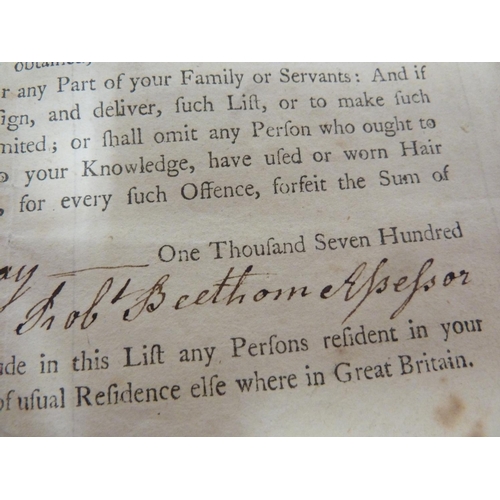 obtained,
r any Part of your Family or Servants: And if
ſign, and deliver, ſuch Liſt, or to make ſuch
mited; or ſhall omit any Perſon who ought to
o your Knowledge, have uſed or worn Hair
, for every ſuch Offence, forfeit the Sum of
ay ——— One Thouſand Seven Hundred
Robᵗ Beethom Aſseſsor
ude in this Liſt any Perſons reſident in your
of uſual Reſidence elſe where in Great Britain.